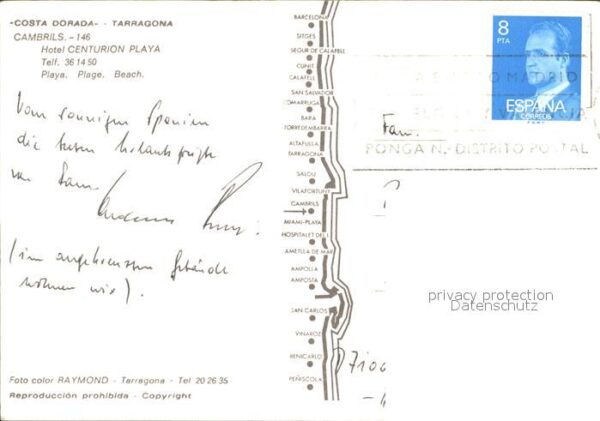 -COSTA DORADA- - TARRAGONA
CAMBRILS. - 146
Hotel CENTURION PLAYA
Telf. 36 14 50
Playa. Plage. Beach.
Vom sonnigen Spanien
die besten Urlaubsgrüße
von Fam.
(im angekreuzten Gebäude
wohnen wir).
Foto color RAYMOND - Tarragona - Tel 20 26 35
Reproducción prohibida - Copyright
BARCELONA
SITGES
SEGUR DE CALAFELL
CUNIT
CALAFELL
SAN SALVADOR
COMARRUGA
BARA
TORREDEMBARRA
ALTAFULLA
TARRAGONA
SALOU
VILAFORTUNY
CAMBRILS
MIAMI-PLAYA
HOSPITALET DEL I.
AMETLLA DE MAR
AMPOLLA
AMPOSTA
SAN CARLOS
VINAROZ
BENICARLO
PEÑISCOLA
8
PTA
ESPAÑA
CORREOS
MADRID
PONGA N.- DISTRITO POSTAL
Fam.
privacy protection
Datenschutz